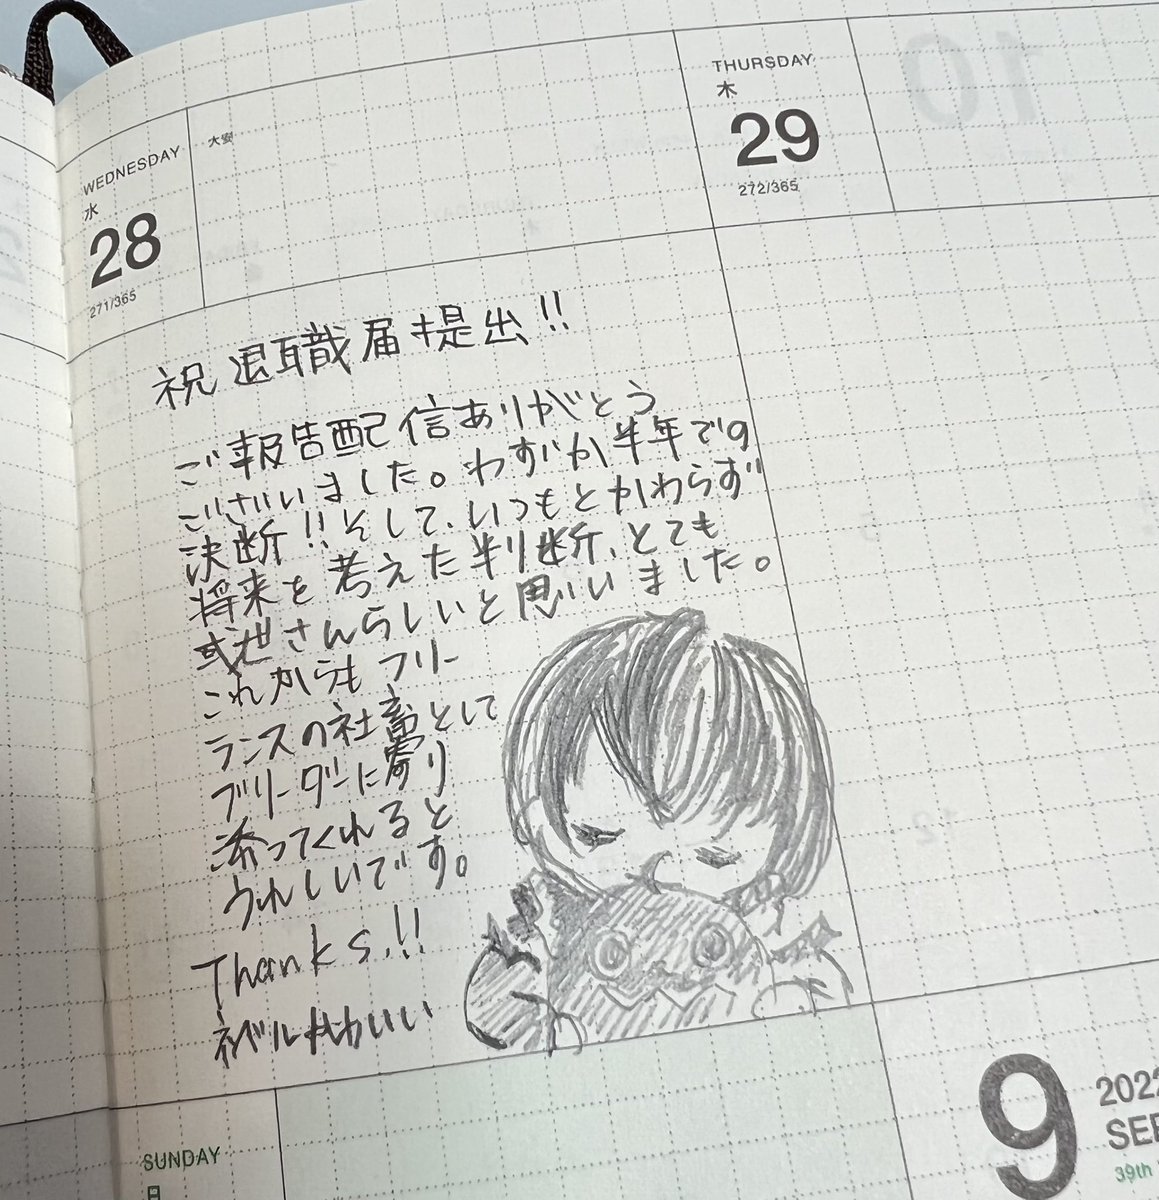 WEDNESDAY
水
28
271/365
大安
THURSDAY
木
29
272/365
10
祝退職届提出!!
ご報告配信ありがとう
ございました。わずか半年での
決断!!そして、いつもとかわらず
将来を考えた判断、とても
さんらしいと思いました。
これからもフリー
ランスの社畜として
ブリーダーに寄り
添ってくれると
うれしいです。
Thanks.!!
ネベルかわいい
SUNDAY
日
9
2022
SEP
39th